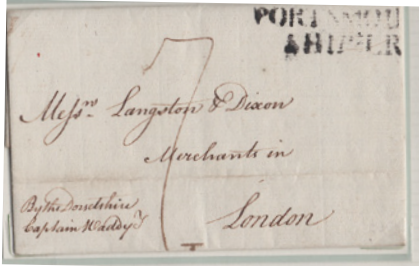 PORTSMOU
SHIP LR
7
Messrs. Langston & Dixon
Merchants in
London
By the Dorsetshire
Captain Waddy